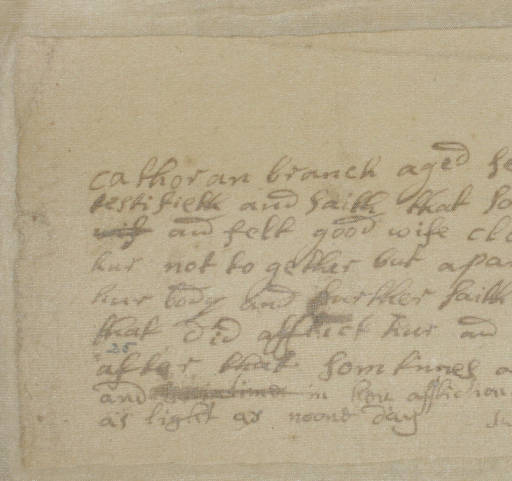 cathoran branch aged se
testifieth and saith that so
wif and felt good wife clo
hur not to gether but apar
hur body and further saith
that did afflict hur and
25
after that somtimes a
and in hur afflictions
as light as noone day